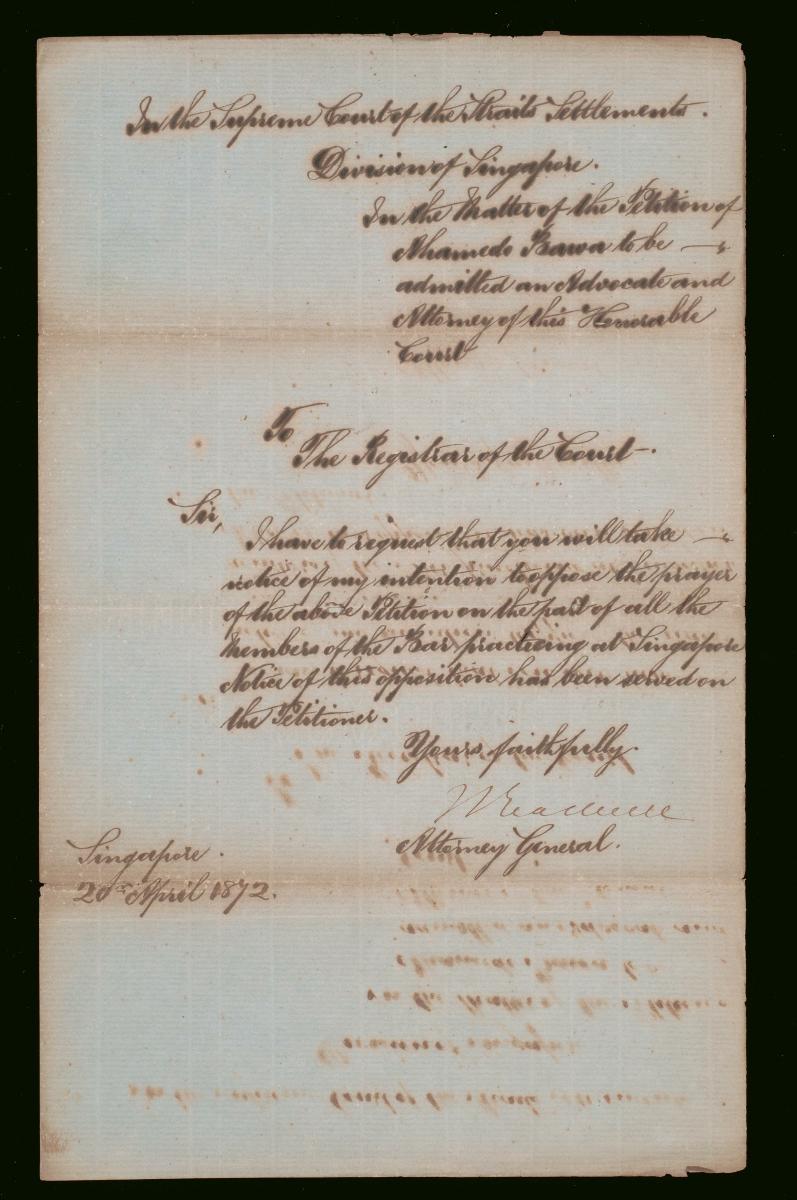 In the Supreme Court of the Straits Settlements.
Division of Singapore.
In the Matter of the Petition of
Ahamedo Bawa to be
admitted an Advocate and
Attorney of this Honorable
Court
To
The Registrar of the Court.
Sir,
I have to request that you will take
notice of my intention to oppose the prayer
of the above Petition on the part of all the
Members of the Bar practicing at Singapore
Notice of this opposition has been served on
the Petitioner.
Yours faithfully.
Attorney General.
Singapore.
20th April 1872.